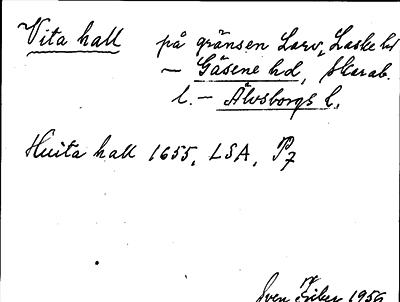 Vita hall på gränsen Larv, Laske hd
– Gäsene hd, Skarab.
l. – Älvsborgs l.
Huita hall 1655, LSA, P7
Sven Fiber 1956